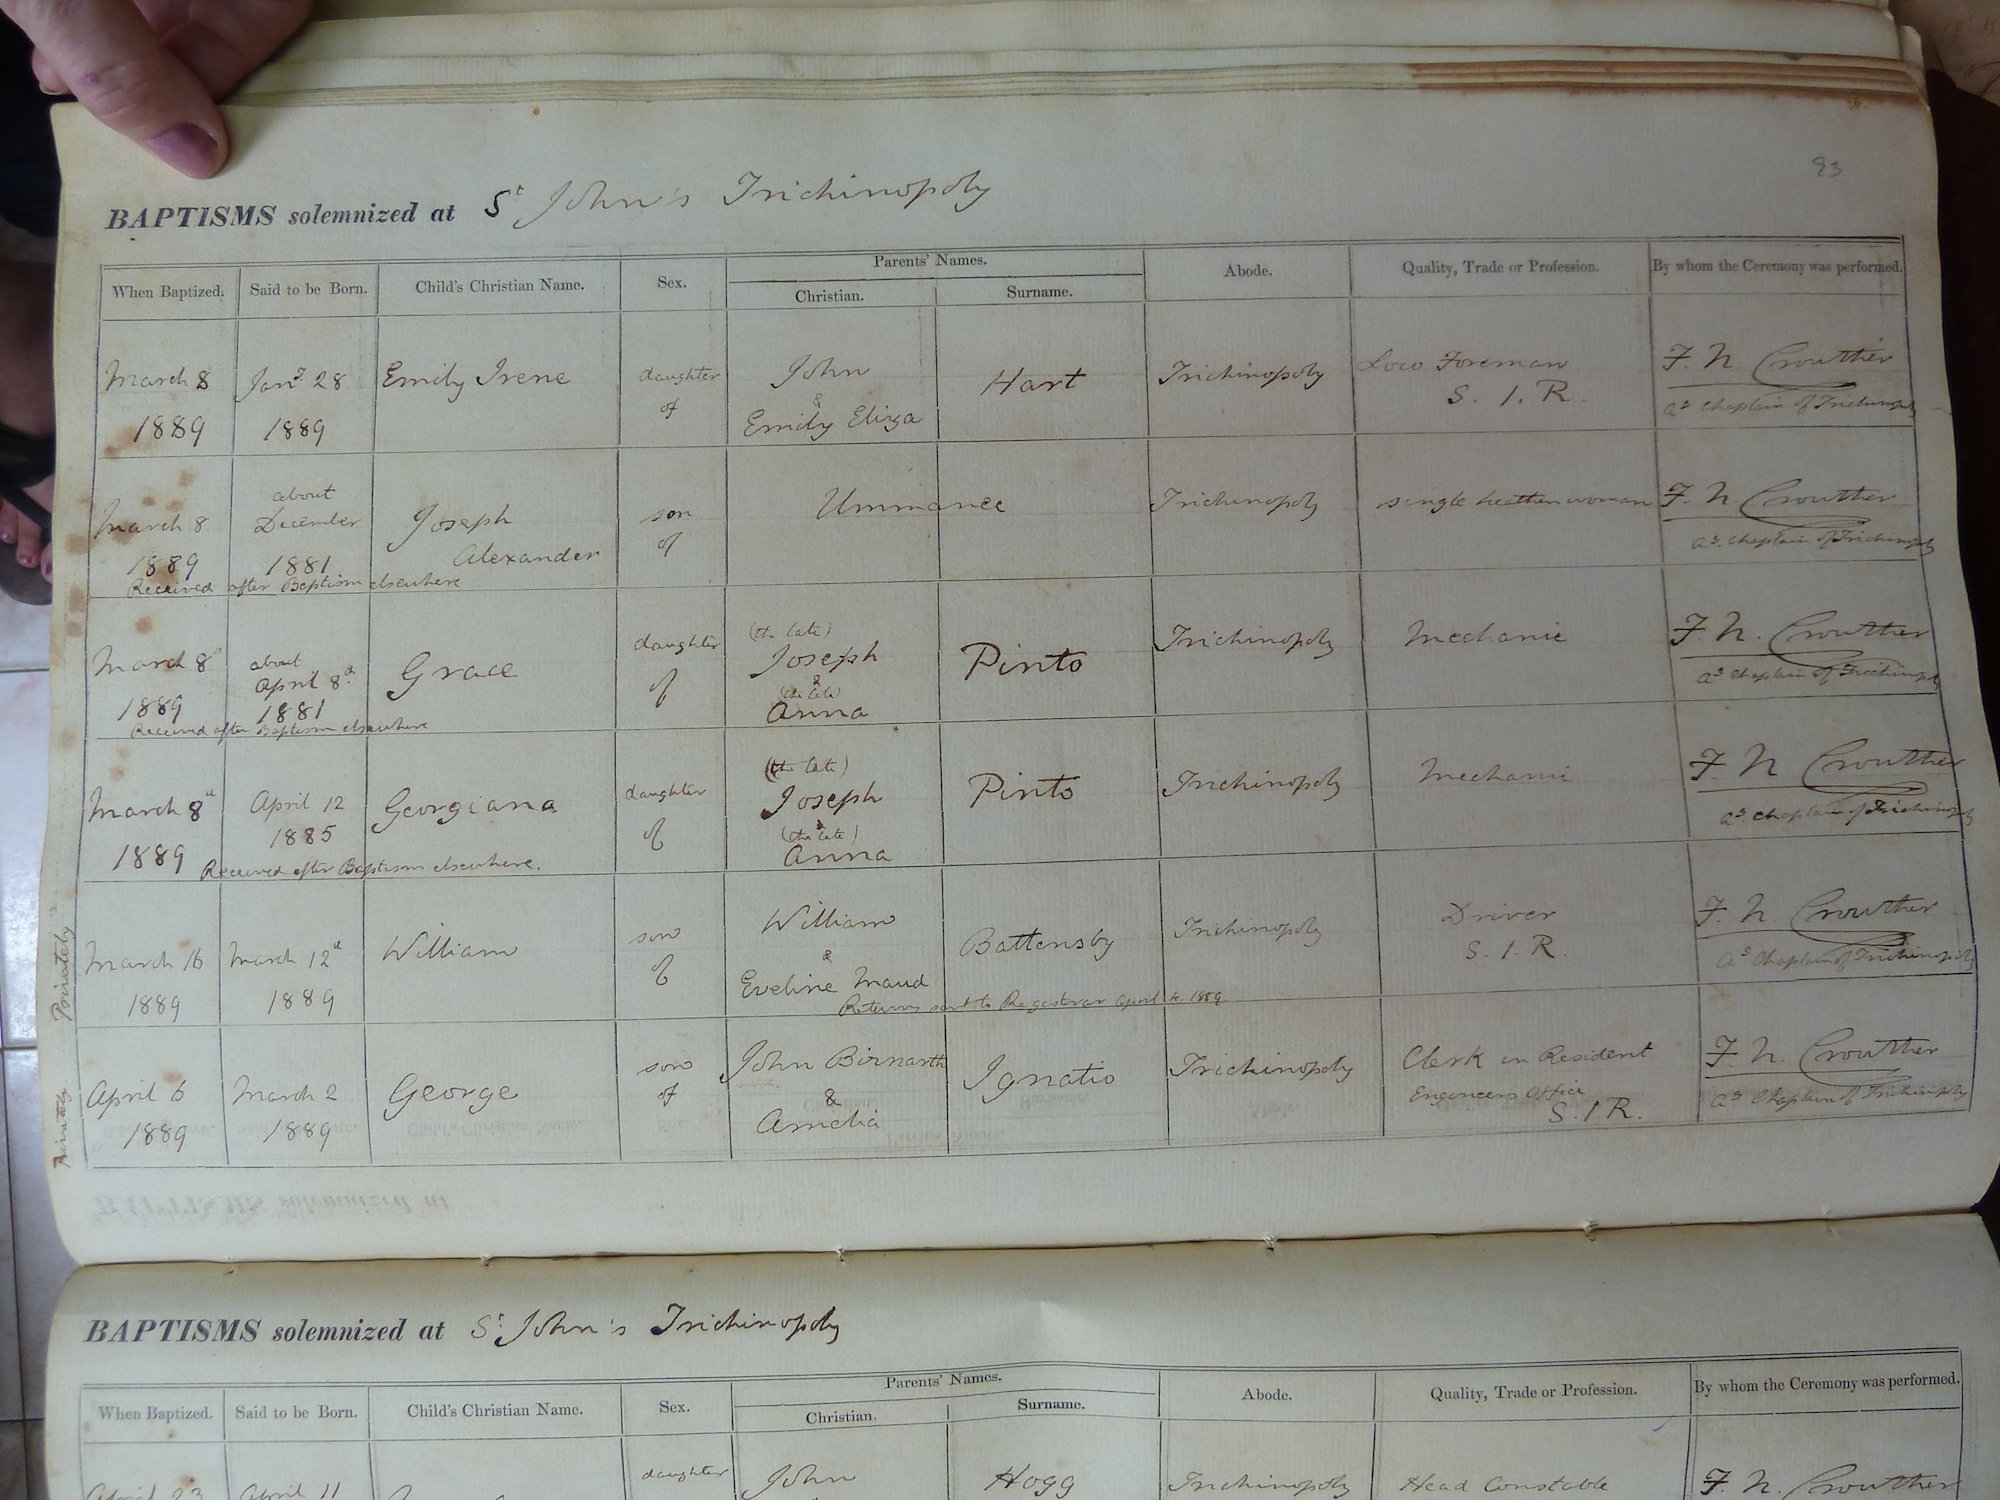 93
BAPTISMS solemnized at St John's Trichinopoly
When Baptized. Said to be Born. Child's Christian Name. Sex. Parents' Names. Abode. Quality, Trade or Profession. By whom the Ceremony was performed.
Christian. Surname.
March 8 1889
Jany 28 1889
Emily Irene
daughter of
John & Emily Eliza
Hart
Trichinopoly
Loco Foreman S. I. R.
F. N. Crowther
as Chaplain of Trichinopoly
March 8 1889
about December 1881
Joseph Alexander
son of
Ummanee
Trichinopoly
single heathen woman
F. N. Crowther
as Chaplain of Trichinopoly
Received after Baptism elsewhere
March 8th 1889
about April 8th 1881
Grace
daughter of
(the late) Joseph & (the late) Anna
Pinto
Trichinopoly
Mechanic
F. N. Crowther
as Chaplain of Trichinopoly
Received after Baptism elsewhere
March 8th 1889
April 12 1885
Georgiana
daughter of
(the late) Joseph & (the late) Anna
Pinto
Trichinopoly
Mechanic
F. N. Crowther
as Chaplain of Trichinopoly
Received after Baptism elsewhere.
Privately
March 16 1889
March 12th 1889
William
son of
William & Eveline Maud
Battensby
Trichinopoly
Driver S. I. R.
F. N. Crowther
as Chaplain of Trichinopoly
Returns sent to Registrar April 1889
Privately
April 6 1889
March 2 1889
George
son of
John & Amelia
Ignatio
Trichinopoly
Clerk in Resident Engineers Office S. I R.
F. N. Crowther
as Chaplain of Trichinopoly
BAPTISMS solemnized at St John's Trichinopoly
When Baptized. Said to be Born. Child's Christian Name. Sex. Parents' Names. Abode. Quality, Trade or Profession. By whom the Ceremony was performed.
Christian. Surname.
April 23
April 11
daughter
John
Hogg
Trichinopoly
Head Constable
F. N. Crowther